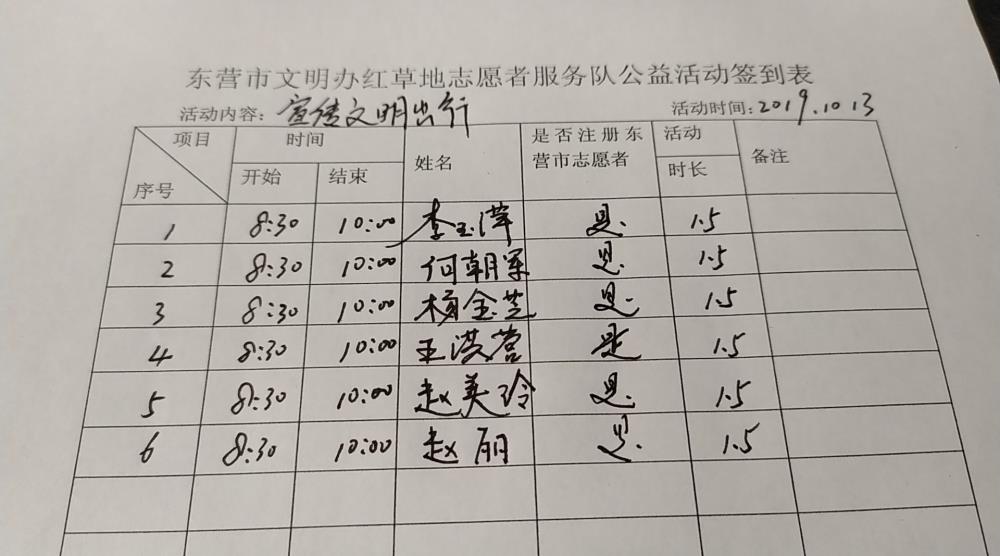 东营市文明办红草地志愿者服务队公益活动签到表
活动内容：宣传文明出行 活动时间：2019.10 13
项目 时间 姓名 是否注册东营市志愿者 活动时长 备注
序号 开始 结束
1 8:30 10:00 李玉萍 是 1.5
2 8:30 10:00 何朝军 是 1.5
3 8:30 10:00 杨金芝 是 1.5
4 8:30 10:00 王洪营 是 1.5
5 8:30 10:00 赵美玲 是 1.5
6 8:30 10:00 赵丽 是 1.5